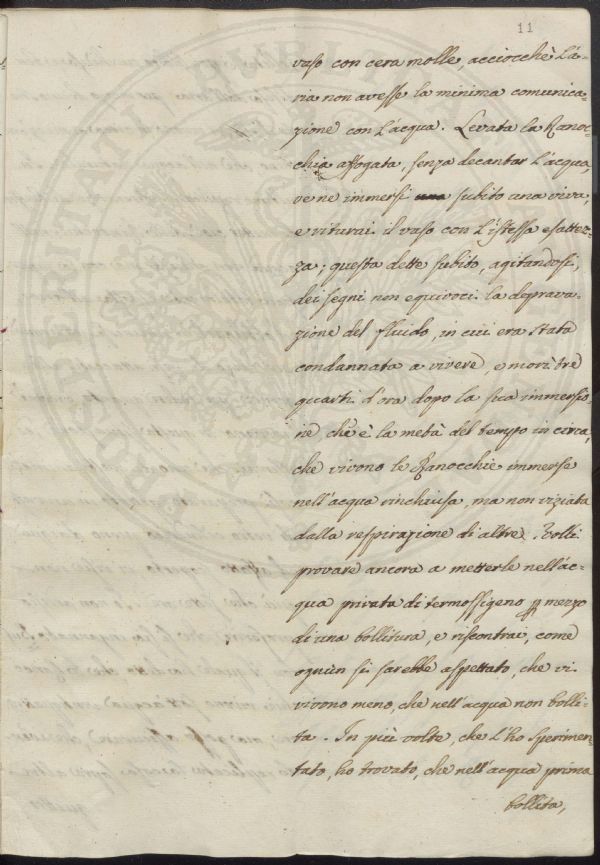 11
vaso con cera molle, acciocchè l'a-
ria non avesse la minima comunica-
zione con l'acqua. Levata la Ranoc-
chia affogata, senza decantar l'acqua,
ve ne immersi una subito una viva,
e riturai il vaso con l'istessa esattez-
za; questa dette subito, agitandosi,
dei segni non equivoci la deprava-
zione del fluido, in cui era stata
condannata a vivere, e morì tre
quarti d'ora dopo la sua immersio-
ne che è la metà del tempo in circa,
che vivono le Ranocchie immerse
nell'acqua rinchiusa, ma non viziata
dalla respirazione di altre. Volli
provare ancora a metterle nell'ac-
qua privata di termossigeno p mezzo
di una bollitura, e riscontrai, come
ognùn si sarebbe aspettato, che vi
vivono meno, che nell'acqua non bolli-
ta. In più volte, che l'ho sperimen-
tato, ho trovato, che nell'acqua prima
bollita,